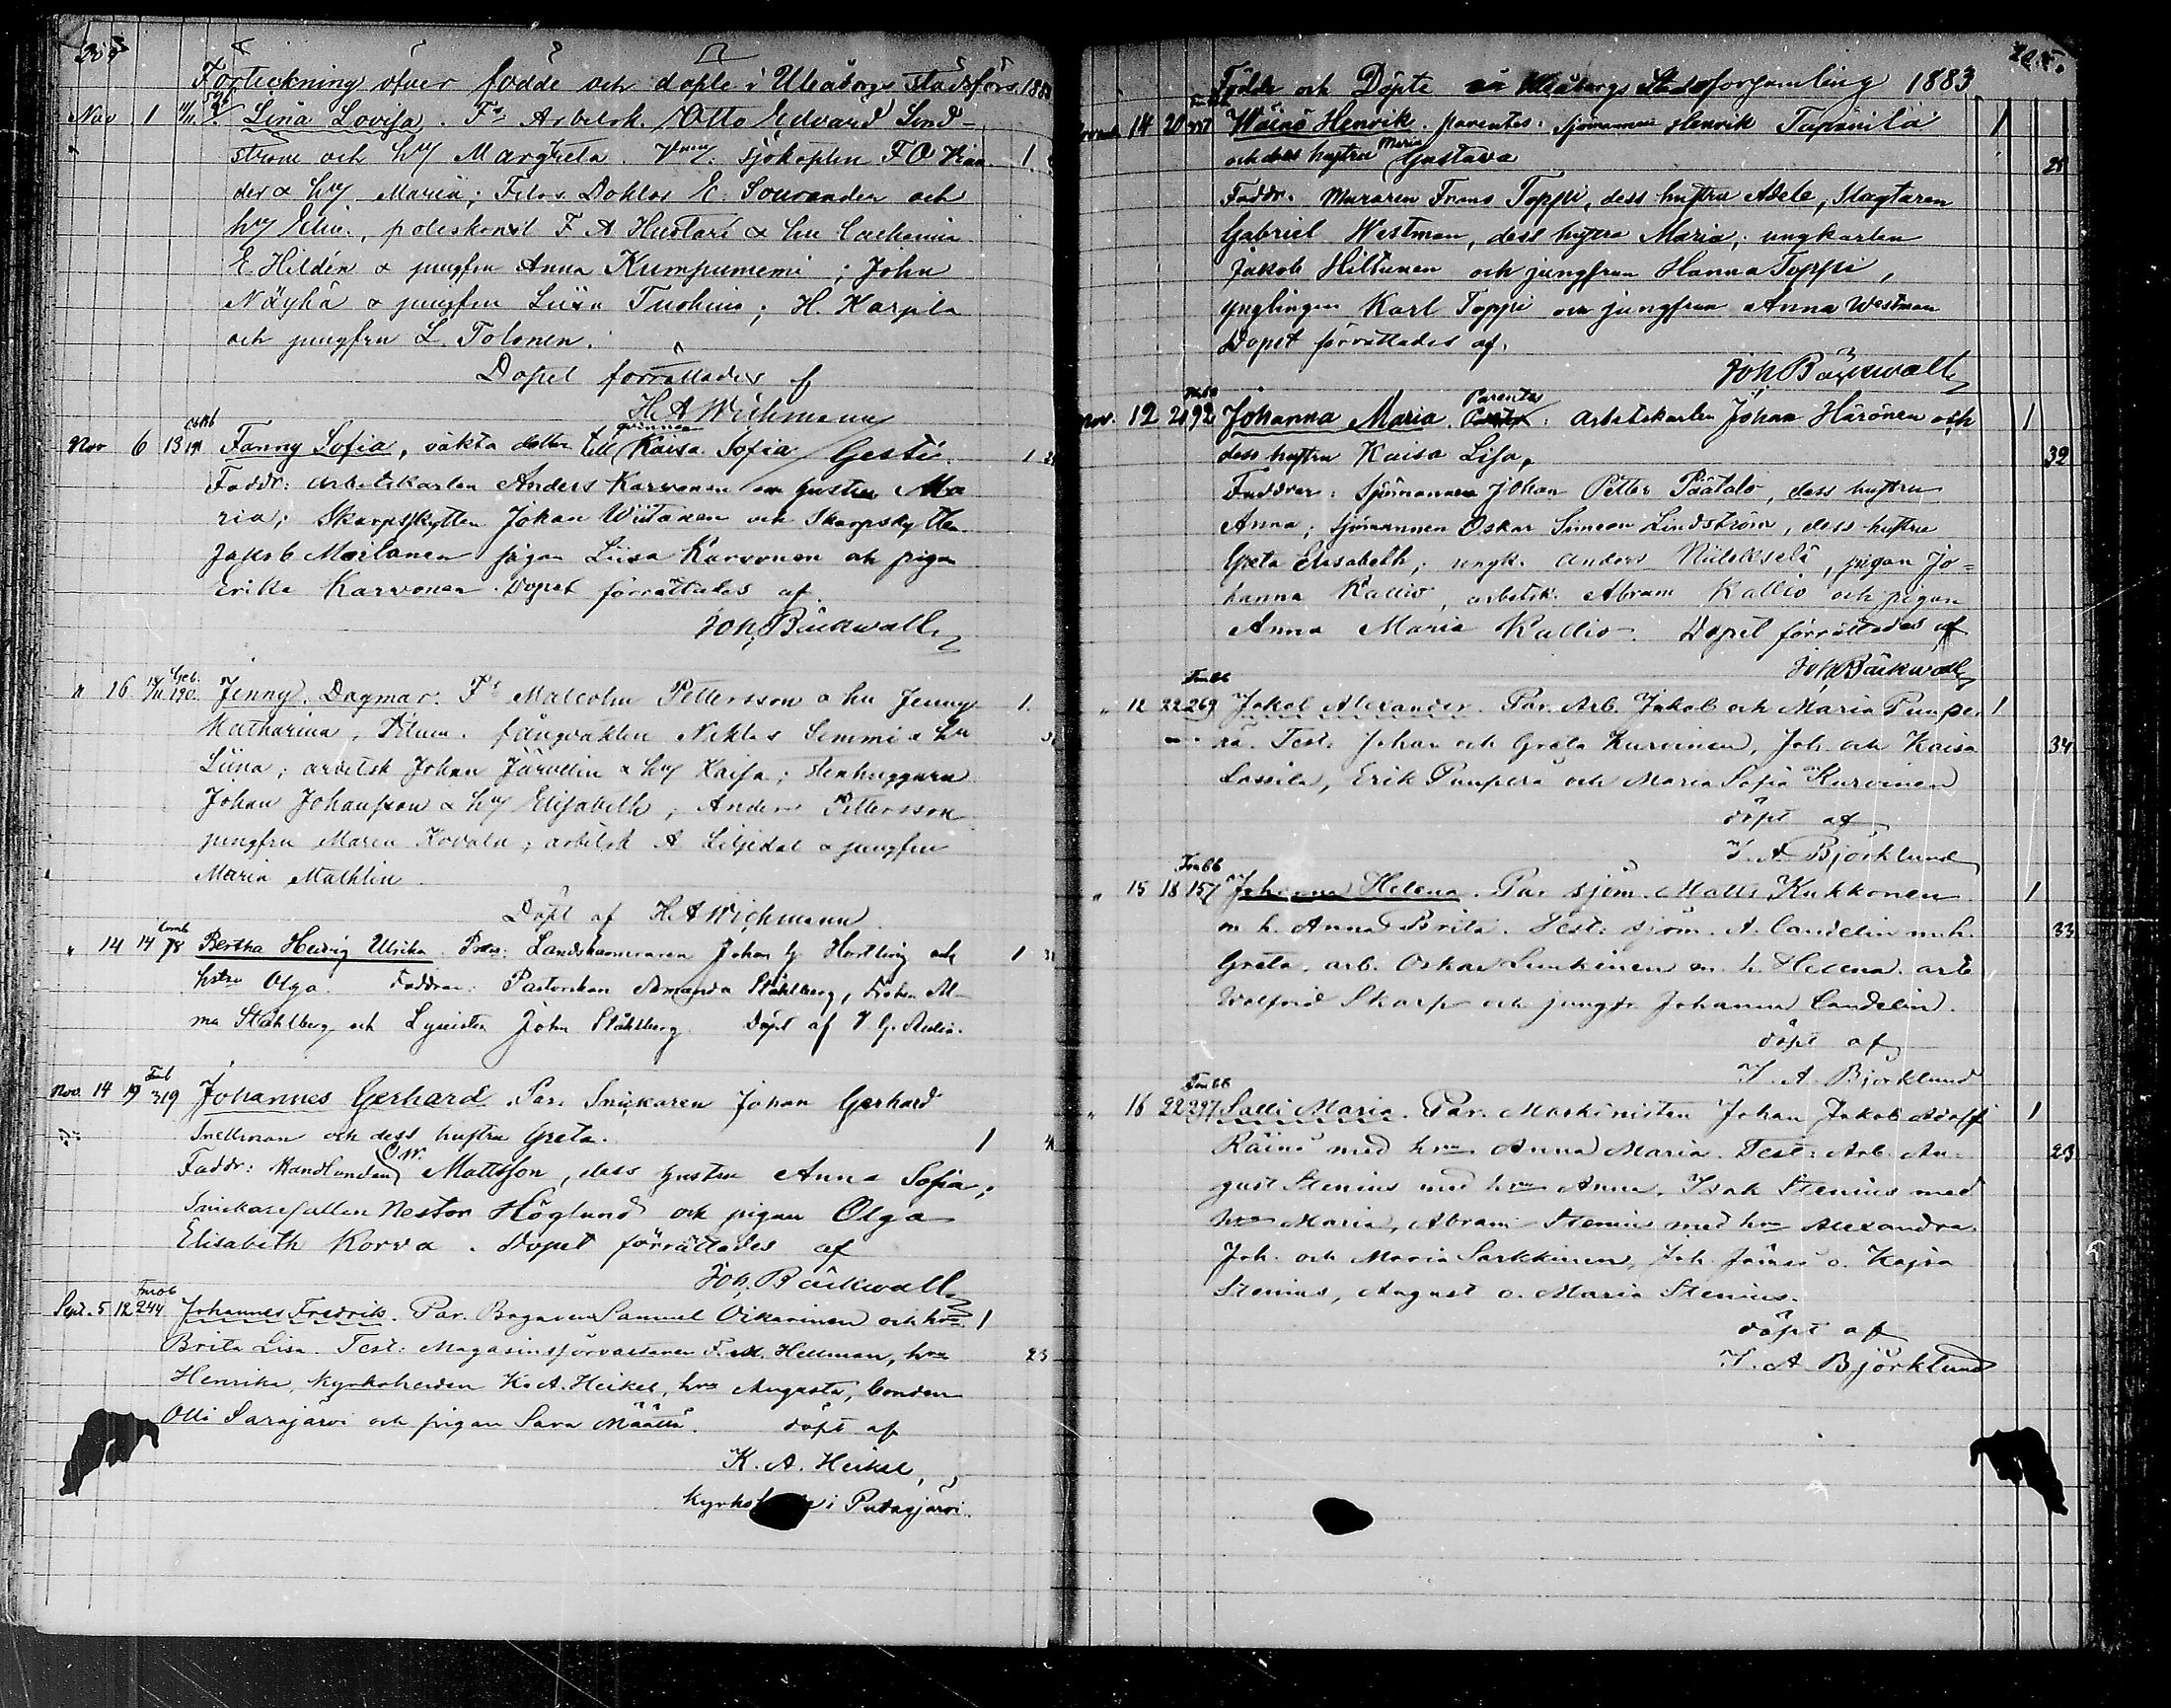 Förteckning öfver födde och döpte i Uleåborgs Stadsförs. 1883
Nov 1 11/11 Lina Lovisa. Fr Arbetsk. Otto Edvard Lind-
ström och hu Margreta. Sjökapten F O
der & hu Maria; Filos. Doktor E. Sourander och
hu Elin, poliskonst F A Huotari & hu Cathrina
E. Hildén & jungfru Anna Kumpumemi; John
Näyhä & jungfru Liisa Tuohino; H. Karpila
och jungfru L. Tolonen.
Dopet förrättades af
H. A Wichmann
Nov 6 13 Fanny Sofia, oäkta dotter till qvinnan Kaisa Sofia
Faddr: arbetskarlen Anders Karvonen och hustru Ma
ria; Skarpskytten Johan Wiitanen och Skarpskytten
Jakob Moilanen pigan Liisa Karvonen och pigan
Erika Karvonen. Dopet förrättades af
Joh. Bäckwall
" 16 190. Jenny Dagmar. Fr Malcolm Pettersson & hu Jenny
Katharina, fångvakten Niklas Lemmi & hu
Liina; arbetsk Johan Järvelin & hu Kaisa; stenhuggaren
Johan Johansson & hu Elisabeth; Anders Pettersson
jungfru Maria Kovala; arbetsk A Liljedal & jungfru
Maria Mathlin
Döpt af H. A Wichmann
" 14 14 78 Bertha Hedvig Ulrika. Landskamreraren Johan G Hortling och
hstru Olga. Faddrar: Pastorskan Amanda Ståhlberg, Fröken Al-
ma Ståhlberg och Lyceisten John Ståhlberg. Döpt af
Nov. 14 19 319 Johannes Gerhard. Par. Snickaren Johan Gerhard
Snellman och dess hustru Greta.
Faddr: Handlanden O.W. Mattsson, dess hustru Anna Sofia;
Snickaregesällen Nestor Höglund och pigan Olga
Elisabeth Korva. Dopet förrättades af
Joh. Bäckwall
Sept. 5 12 244 Johannes Fredrik. Par. Bagaren Samuel Oikarinen och hru
Brita Lisa. Test: Magasinsförvaltaren F. M. Hellman, hru
Henrika, Kyrkoherden K. A. Heikel, hru Augusta, bonden
Olli Sarajärvi och pigan Sara Määttä. döpt af
K. A. Heikel,
i Pudasjärvi.
Födde och Döpte Uleåborgs Stadsförsamling 1883
14 20 357 Wäinö Henrik. parentes: Sjömannen Henrik Tapanila 1
och dess hustru Maria Gustava 28
Faddr. Muraren Frans Toppi, dess hustru Adele, Slagtaren
Gabriel Westman, dess hustru Maria; ungkarlen
Jakob Hiltunen och jungfrun Hanna Toppi,
ynglingen Karl Toppi och jungfrun Anna Westman
Dopet förrättades af.
Joh. Bäckwall
Nov. 12 21 92 Johanna Maria. Parentes: arbetskarlen Johan Härönen och 1
dess hustru Kaisa Lisa. 32
Faddrar: Sjömannen Johan Petter Päätalo, dess hustru
Anna; sjömannen Oskar Simeon Lindström, dess hustru
Greta Elisabeth; ungk. Anders, pigan Jo=
hanna Kallio, arbetsk. Abram Kallio och pigan
Anna Maria Kallio. Dopet förrättades af
Joh. Bäckwall
" 12 22 269 Jakob Alexander. Par. Arb. Jakob och Maria Pumpe 1
rä. Test: Johan och Greta Kurvinen, Joh. och Kaisa 34
Lassila, Erik Pumperä och Maria Sofia Kurvinen
döpt af
I. A Björklund
" 15 18 157 Johanna Helena. Par sjöm. Matts Kukkonen 1
m h. Anna Brita. Test: sjöm. A. Candelin m. h. 33
Greta, arb. Oskar Lumkinen m. h Helena. arb
Wolfrid Skarp och jungfr Johanna Candelin.
döpt af
I. A. Björklund
" 16 22 297 Salli Maria. Par. Maskinisten Johan Jakob Adolf 1
Räinö med hru Anna Maria. Test: Arb. Au- 23
gust Stenius med hru Anna, Isak Stenius med
hru Maria, Abram Stenius med hru Alexandra
Joh. och Maria Sarkkinen, Joh. Jämsä o. Kajsa
Stenius, August o. Maria Stenius.
döpt af
I. A Björklund